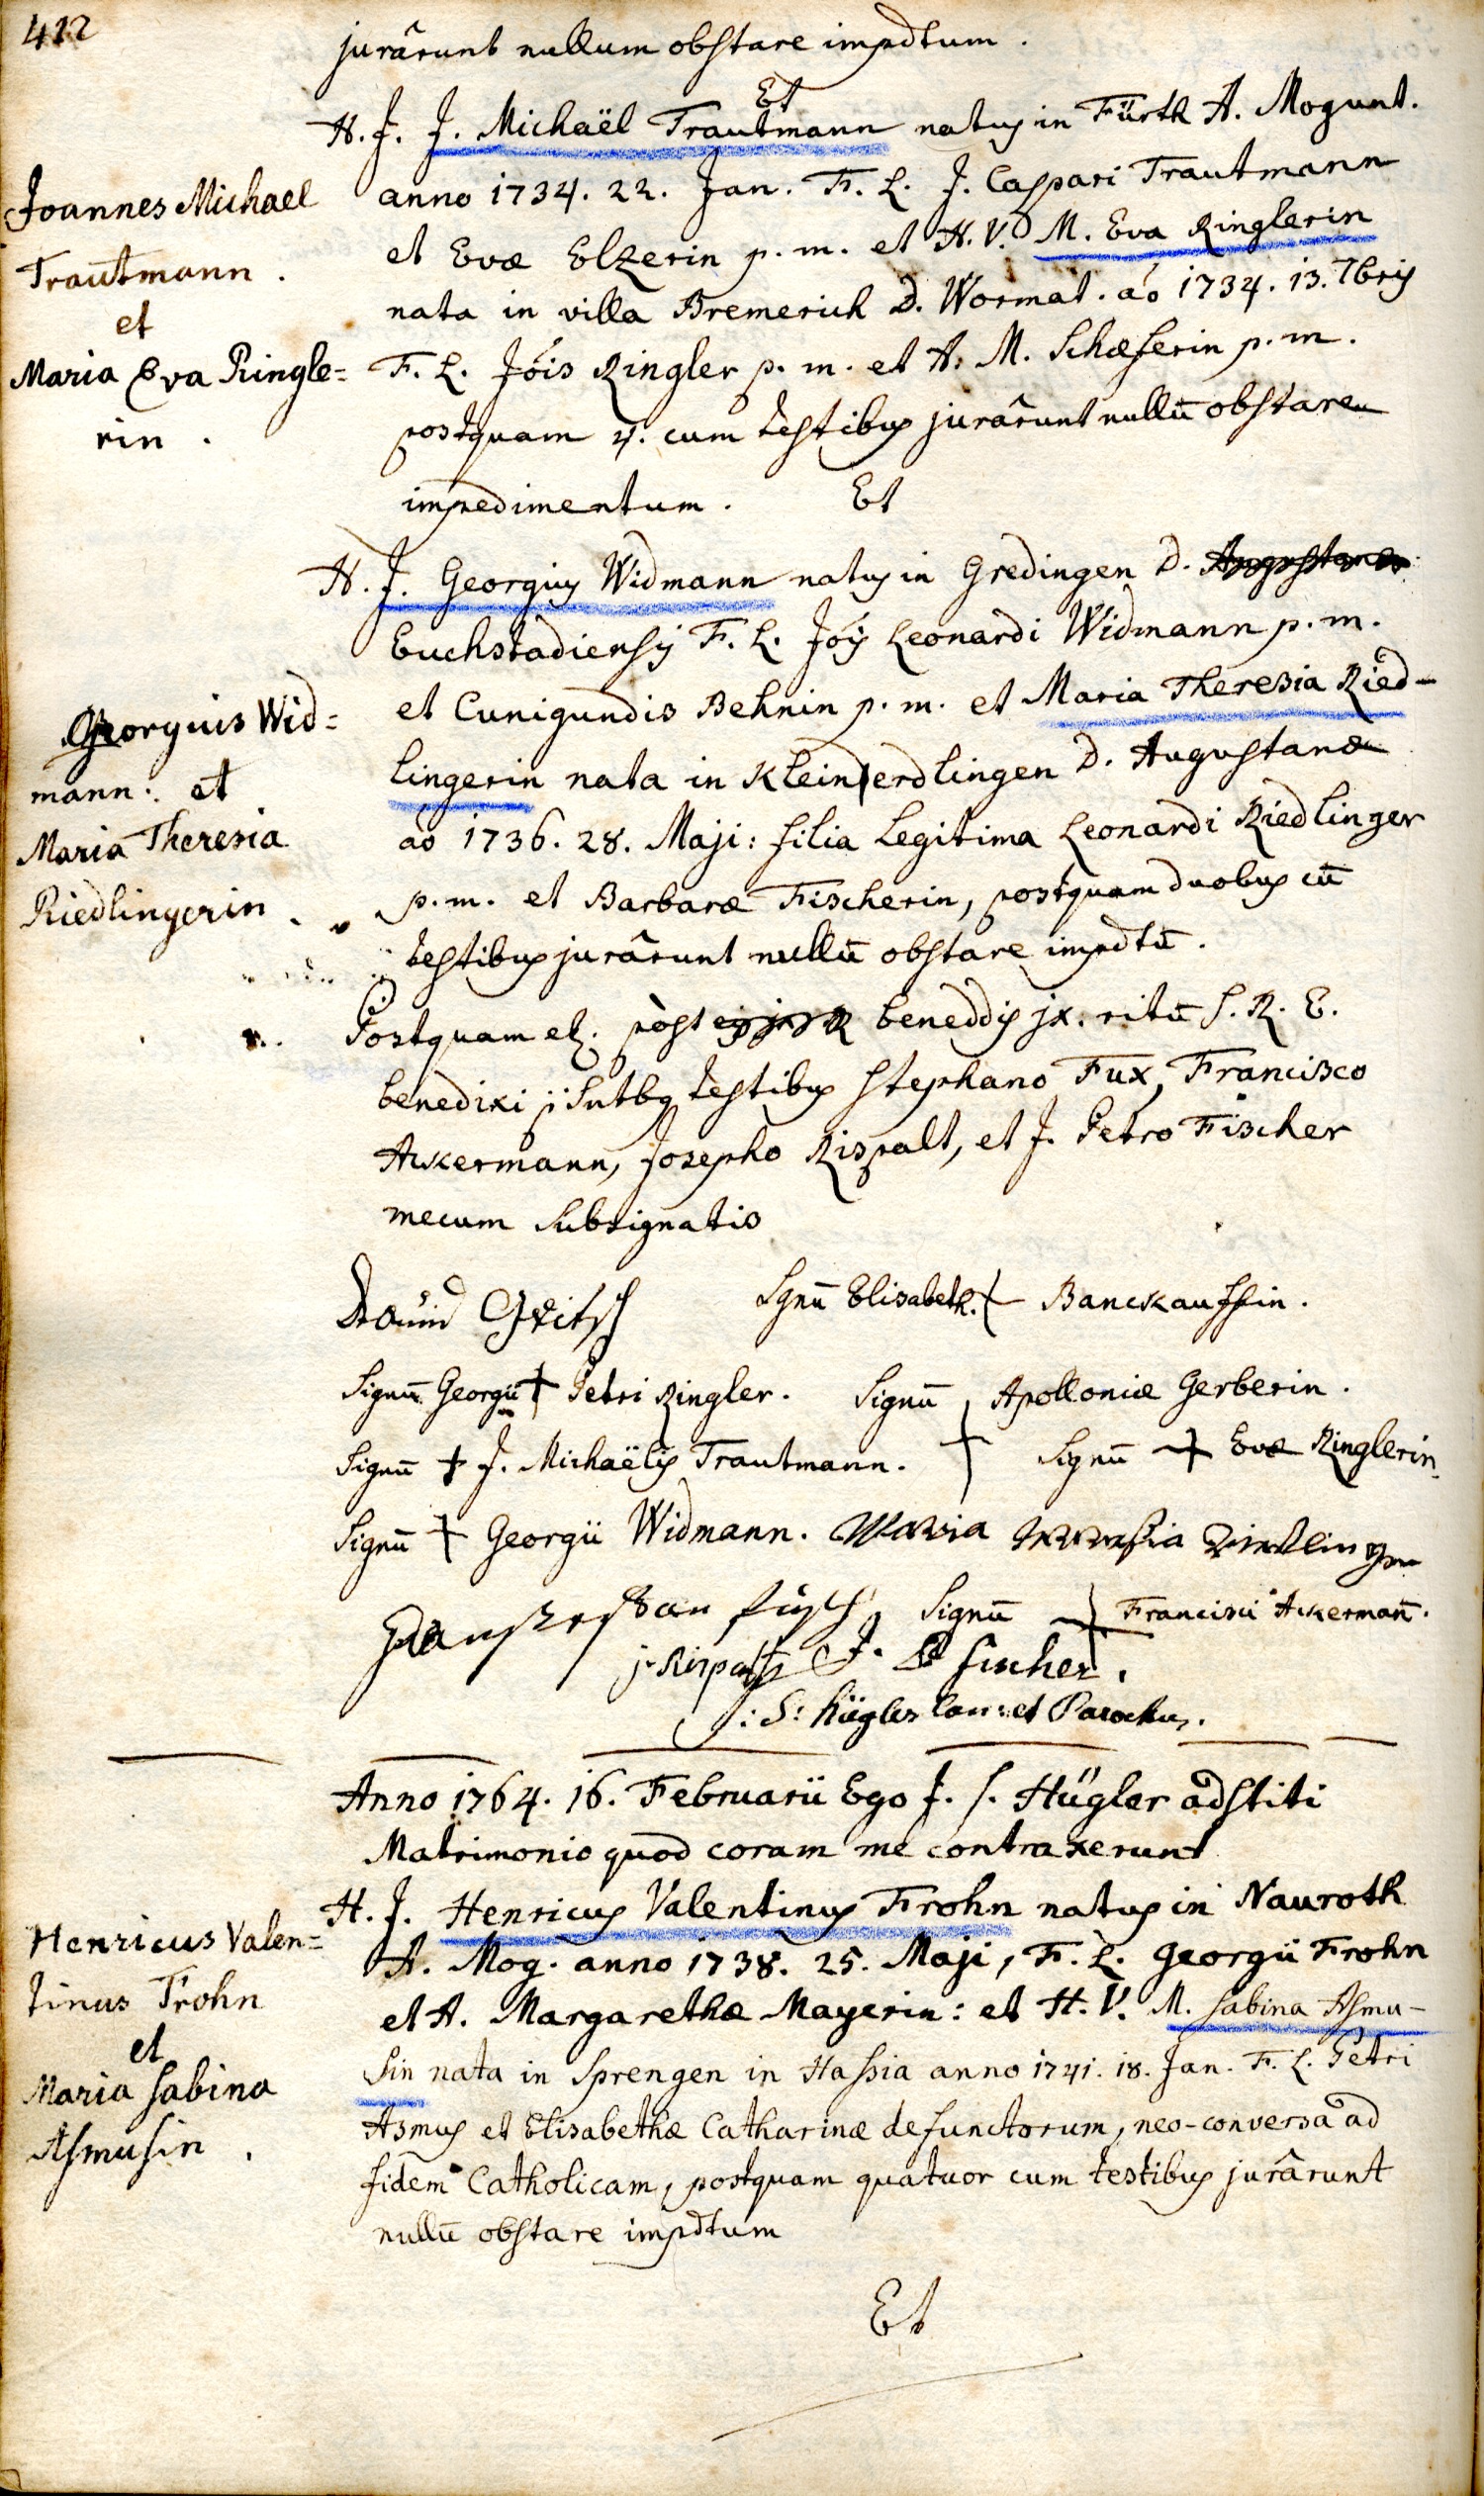 412
jurârunt nullum obstare impdtum.
Et
H. J. J. Michaël Trautmann natus in Fürth A. Mogunt.
Joannes Michael
Trautmann.
et
Maria Eva Ringle=
rin.
anno 1734. 22. Jan. F. L. J. Caspari Trautmann
et Evæ Elzerin p. m. et H. V. M. Eva Ringlerin
nata in villa Bremerich D. Wormat. aõ 1734. 13. 7bris
F. L. Jõis Ringler p. m. et A. M. Schæferin p. m.
postquam 4. cum testibus jurârunt nullū obstare
impedimentum. Et
H. J. Georgius Widmann natus in Gredingen D.
Euchstadiensis F. L. Jõis Leonardi Widmann p. m.
Georguis Wid=
mann. et
Maria Theresia
Riedlingerin.
et Cunigundis Behnin p. m. et Maria Theresia Ried-
lingerin nata in Kleinerdlingen D. Augustanæ
aõ 1736. 28. Maji: filia legitima Leonardi Riedlinger
p. m. et Barbaræ Fischerin, postquam duobus cū
testibus jurârunt nullū obstare impdtū.
Postquam eż. pòst beneddis jx. ritū S. R. E.
benedixi testibus Stephano Fux, Francisco
Ackermann, Josepho Rispalt, et J. Petro Fischer
mecum subsignatis
Dauid Gritsch Sgnū Elisabeth. + Banckauffin.
Signū Georgii + Petri Ringler. Signū + Apolloniæ Gerberin.
Signū + J. Michaëlis Trautmann. Signū + Evæ Ringlerin
Signū + Georgii Widmann. Maria Theresia Riedlinger
Signū + Francisci Ackermañ.
j. Rispalt J. P fischer.
J: S: Hügler Can: et Parochus.
Anno 1764. 16. Februarii Ego J. S. Hügler adstiti
Matrimonio quod coram me contraxerunt
H. J. Henricus Valentinus Frohn natus in Nauroth
Henricus Valen=
tinus Frohn
et
Maria Sabina
Asmusin.
A. Mog. anno 1738. 25. Maji, F. L. Georgii Frohn
et A. Margarethæ Mayerin: et H. V. M. Sabina Asmu-
sin nata in Sprengen in Hassia anno 1741. 18. Jan. F. L. Petri
Asmus et Elisabethæ Catharinæ defunctorum, neo-conversa ad
fidem Catholicam, postquam quatuor cum testibus jurârunt
nullū obstare impdtum
Et